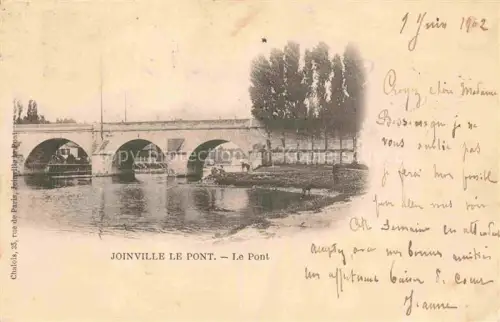 1 Juin 1902
Croyez chère Madame
que je ne
vous oublie pas
je ferai mon possible
pour aller vous voir
Demain en attendant
acceptez avec mes bonnes amitiés
un affectueux baiser de cœur
Jeanne
JOINVILLE LE PONT. – Le Pont
Chalois, 25, rue de Paris, Joinville le Pont